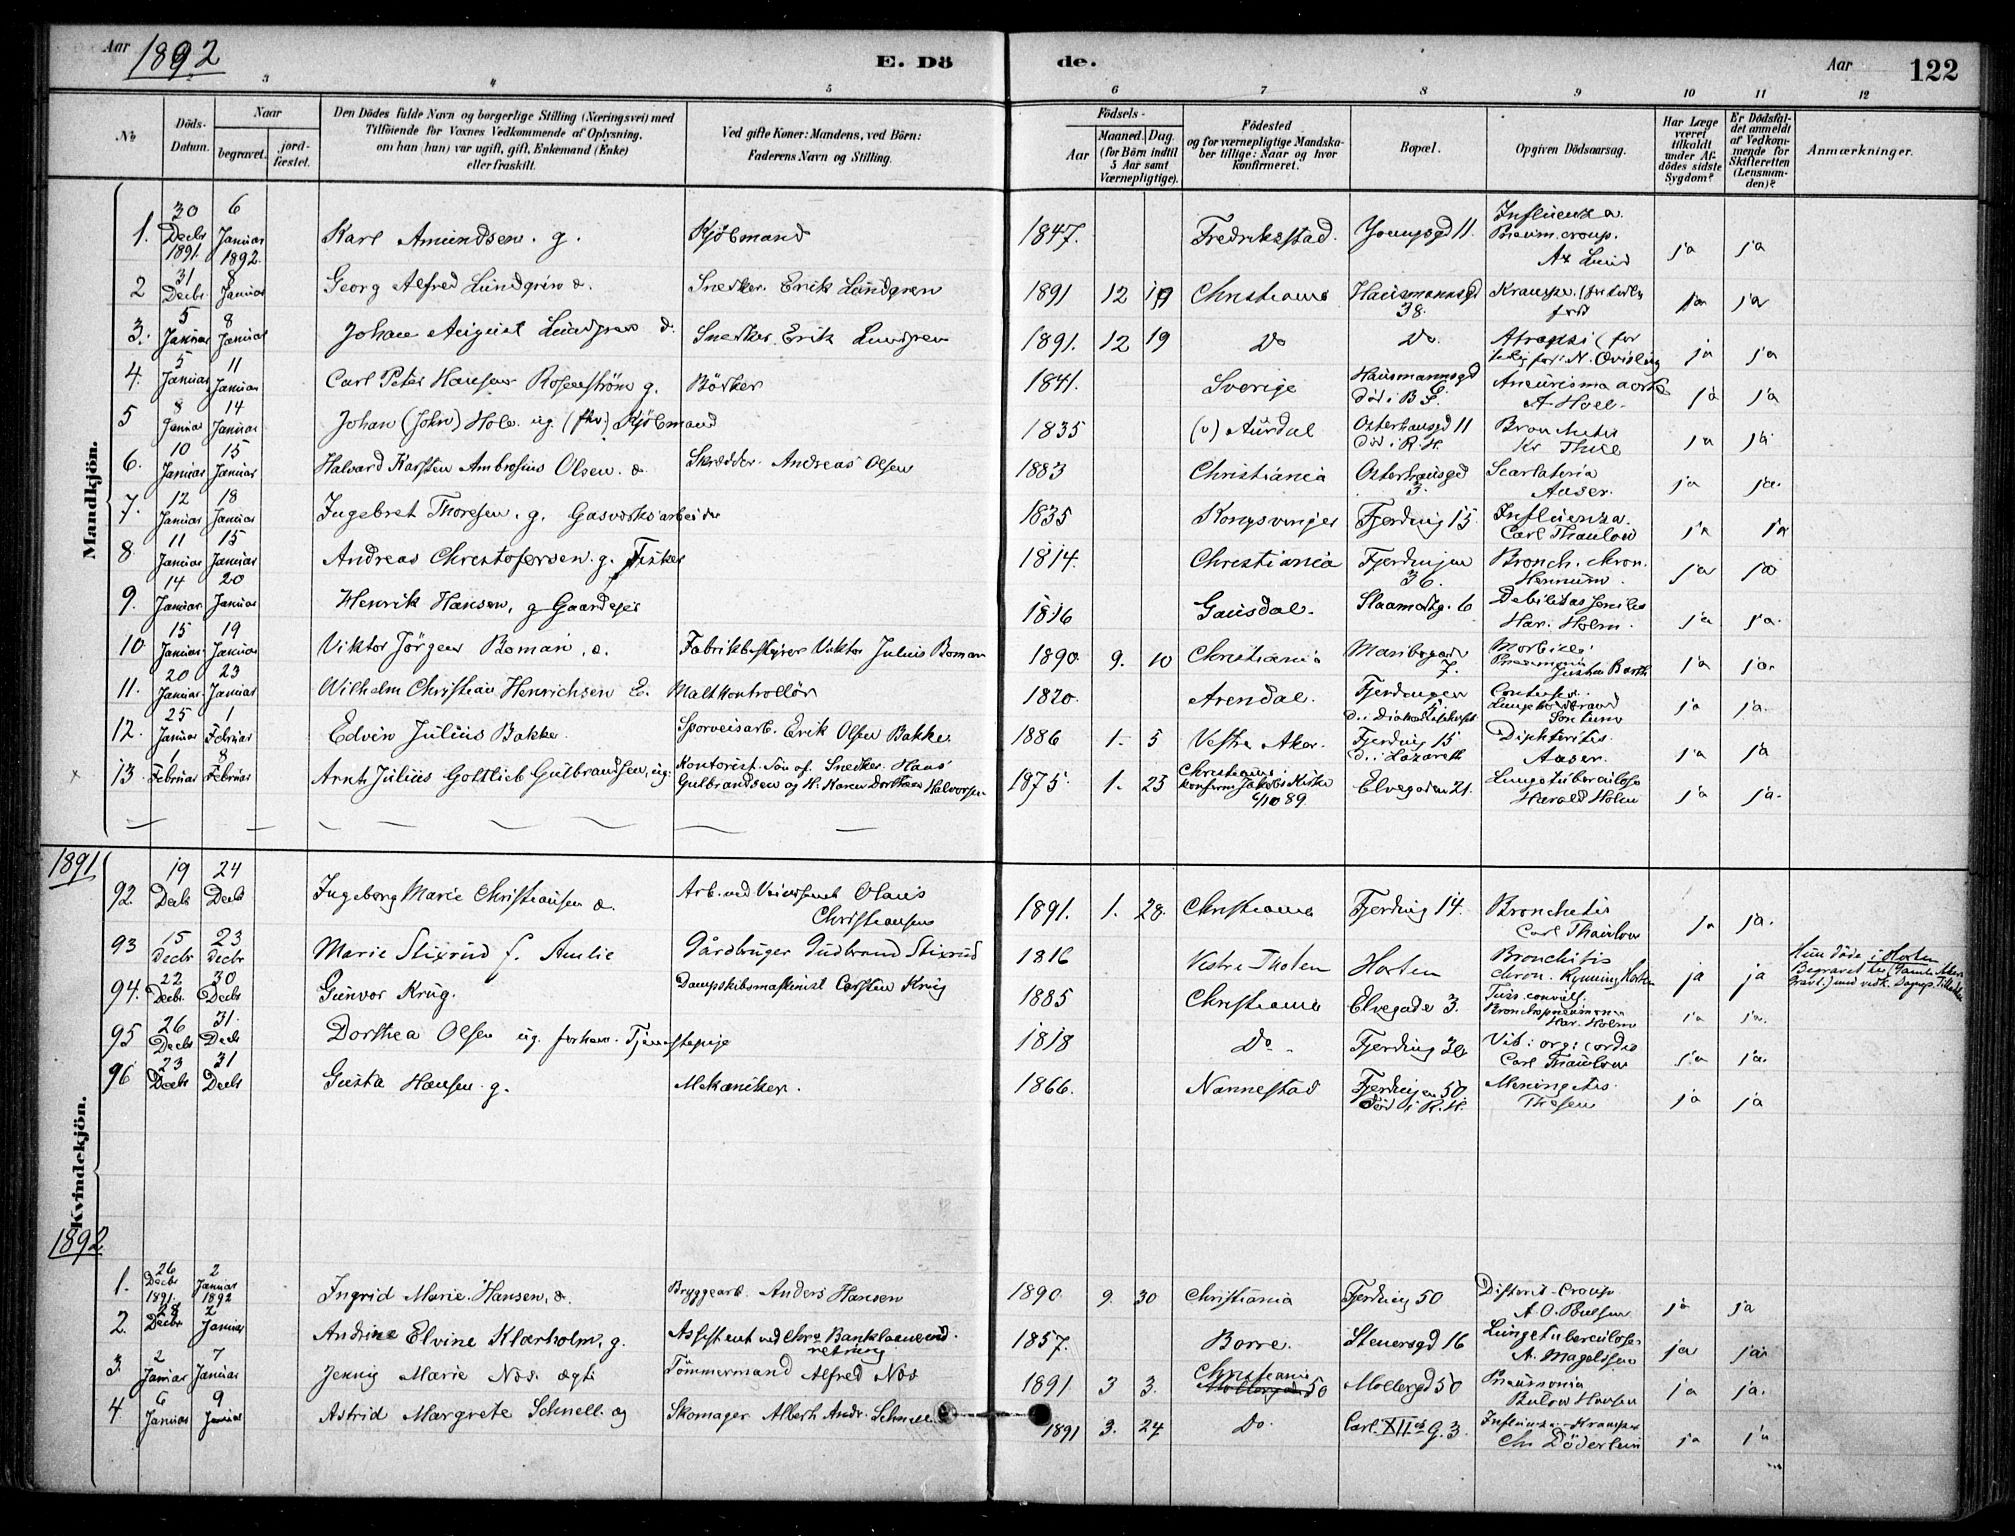 Aar 1892
E. Dö
de.
Aar
122
3 4 5 6 7 8 9 10 11 12
No
Döds-Datum.
Naar
begravet.
jord-fæstet.
Den Dödes fulde Navn og borgerlige Stilling (Næringsvei) med
Tilföiende for Voxnes Vedkommende af Oplysning,
om han (hun) var ugift, gift, Enkemand (Enke)
eller fraskilt.
Ved gifte Koner: Mandens, ved Börn:
Faderens Navn og Stilling.
Födsels-
Aar
Maaned. Dag.
(for Börn indtil
5 Aar samt
Værnepligtige).
Födested
og for værnepligtige Mandska-
ber tillige: Naar og hvor
konfirmeret.
Bopæl.
Opgiven Dödsaarsag.
Har Læge
været
tilkaldt
under Af-
dödes sidste
Sygdom?
Er Dödsfal-
det anmeldt
af Vedkom-
mende for
Skifteretten
(Lensman-
den)?
Anmærkninger.
Mandkjön.
1. 30 Decbr 1891. 6 Januar 1892. Karl Amundsen. g. Kjöbmand 1847. Fredriksstad. Youngsgd 11. Influenza. croup. Ax Lund ja ja
2 31 Decbr 8 Januar Georg Alfred Lundgren æ. Snedker. Erik Lundgren 1891 12 19 Christiania Hausmannsgd 38. Krampe. ja ja
3. 5 Januar 8 Januar Johan August Lundgren æ. Snedker. Erik Lundgren 1891. 12 19 Do Do. Atrophi (for N. Qvisling ja ja
4. 5 Januar 11 Januar Carl Peter Hansen Rosenström g. Bödker 1841. Sverige Hausmannsgd 6. död i B S. Aneurisma aorta A Holl. ja ja
5 8 Januar 14 Januar Johan (John) Hole. ug. (fhv) Kjöbmand 1835 (v) Aurdal Osterhausgd 11 Död i R. H. Bronchitis Kr Thue ja ja
6. 10 Januar 15 Januar Halvard Karsten Ambrosius Olsen. æ Skrædder. Andreas Olsen 1883 Christiania Osterhausgd 3. Scarlatina Aaser. ja ja.
7. 12 Januar 18 Januar Ingebret Thoresen. g. Gasværksarbeider 1835 Kongsvinger Fjerding 15 Influenza. Carl Thaulow ja ja
8. 11 Januar 15 Januar Andreas Christofersen. g. Fisker 1814. Christiania Fjerdingen 36. Bronch. chron. Hennum. ja ja
9. 14 Januar 20 Januar Henrik Hansen, g Gaardejer 1816 Gausdal. 6 Debilitas senilis Har. Holm. ja ja.
10 15 Januar 19 Januar Viktor Jörgen Boman. æ. Fabrikbestyrer Viktor Julius Boman 1890. 9. 10 Christiania Maribogade 7. Morbilli Pneumonia Barth ja ja.
11. 20 Januar 23 Januar Wilhelm Christian Henrichsen E. Maltkontrollör 1820 Arendal. Fjerdingen ja ja.
12. 25 Januar 1 Februar Edvin Julius Bakke. Sporveisarb. Erik Olsen Bakke. 1886 1. 5 Vestre Aker. Fjerding 15 d. i Lazareth Diphteritis. Aaser. ja ja
13. 1 Februar 8 Februar Arnt Julius Gottlieb Gulbrandsen, ug. Kontorist. Sön af. Snedker. Hans Gulbrandsen og H. Karen Dorthea Halvorsen 1875. 1. 23 Christiania konfirm Jakobs Kirke 6/10 89 Elvegaden 21. Lungetuberculose Harald Holm ja ja.
1891
Kvindekjön.
92. 19 Decbr 24 Decbr Ingeborg Marie Christiansen æ. Arb. ved Olaus Christiansen 1891. 1. 28. Christiania Fjerding 14. Bronchitis Carl Thaulow ja ja.
93 15 Decbr 23 Decbr Marie Stixrud f. Amlie Gårdbruger Gudbrand Stixrud 1816 Vestre Thoten Horten Bronchitis chron. Rynning Horten ja ja Hun döde i Horten Begravet Gamle Akers
94. 22 Decbr. 30 Decbr Gunvor Krug. Dampskibsmaskinist Carsten Krug 1885 Christiania Elvegade 3. Tuss. convuls. Bronchopneumonia Har. Holm ja ja.
95 26 Decbr 31. Decbr Dorthea Olsen ug. forhenv. Tjenestepige 1818 Do Fjerding 30 Vit: org: cordis Carl Thaulow ja ja.
96 23 Decbr 31 Decbr Gusta Hansen. g. Mekaniker. 1866. Nannestad Fjerdingen 50. Död i R. H. Meningitis. Thesen ja ja
1892
1. 26 Decbr 1891. 2 Januar 1892 Ingrid Marie. Hansen, æ. Bryggearb. Anders Hansen 1890. 9. 30 Christiania Fjerding 50 Croup A. O. Poulsen ja ja
2. 28 Decbr 2 Januar Andrine Elvine Klærholm, g. Assistent ved Chra Banklaaneindretning 1857. Borre. Stenersgd 16 Lungetuberculose A. Magelssen ja ja
3. 2 Januar 7 Januar Jenny Marie Nos. ægte Tömmermand Alfred Nos 1891 3 3. Christiania Mollergd 50 Mollergd 50 Pneumonia Bulow Hansen ja ja.
4 6 Januar 9 Januar Astrid Margrete Schnell. æg Skomager Albert Andr. Schnell. 1891 3. 24 Do. Carl XIIs G. 3. Influenza-Krampe Chr. Döderlein ja ja